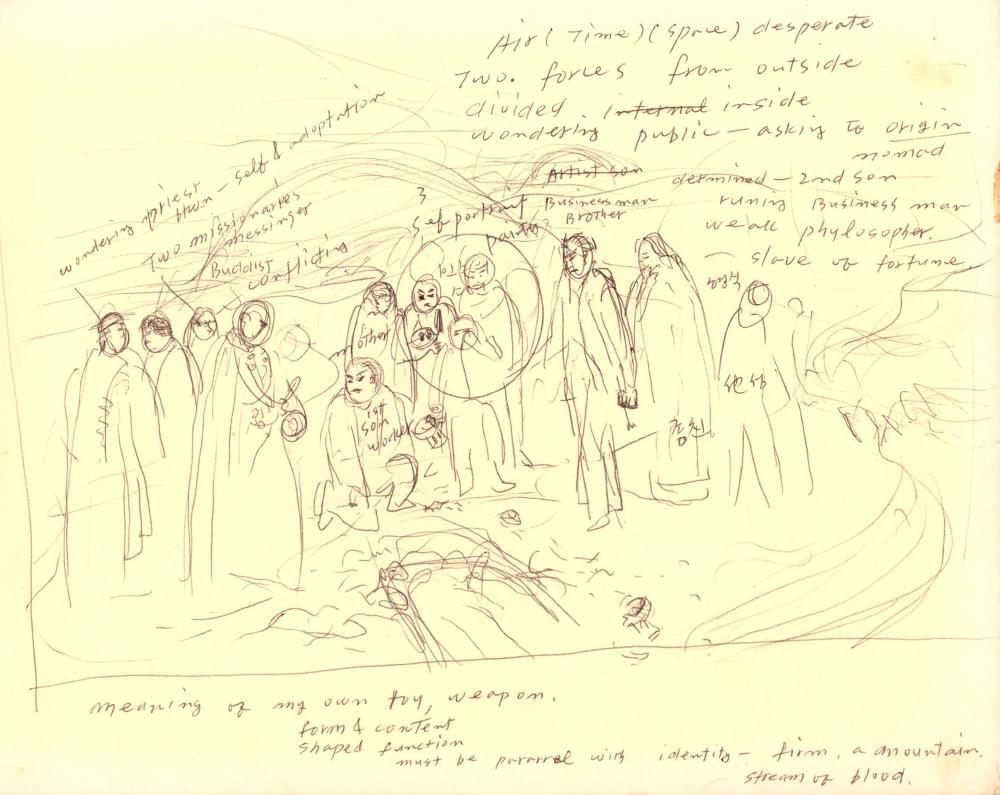 Air (Time) (space) desperate
Two. forces from outside
divided internal inside
wondering public — asking to origin
nomad
dermined — 2nd son
runing Business man
weak phylosopher.
— slave of fortune
Artist son
Businessman
Brother
3
Sef portrait
painter
wondering priest
— self & adoptation
Two missionaries
messinger
Buddist
conflicting
mother
1st
son
worker
meaning of my own toy, weapon.
form & content
shaped function
must be pararrel with identity — firm, a mountain.
stream of blood.